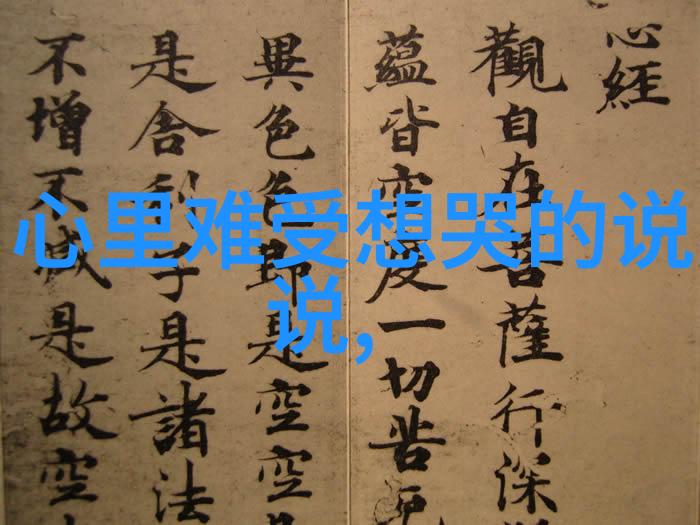 心里难受想哭的说
说,
心經
觀自在菩薩行深
蘊皆空度一切苦厄
異色色即是空空是
是舍利子是諸法
不增不減是故空